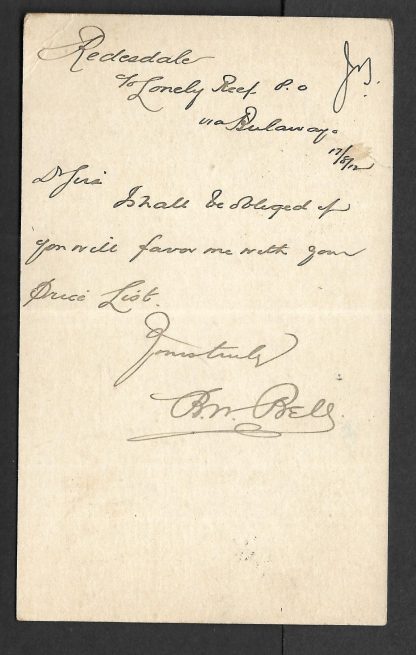 Redesdale
c/o Lonely Reef P.O
via Bulawayo
17/8/12
Dr Sirs
I shall be obliged if
you will favor me with your
Price List.
Yours truly
B.W. Bell.